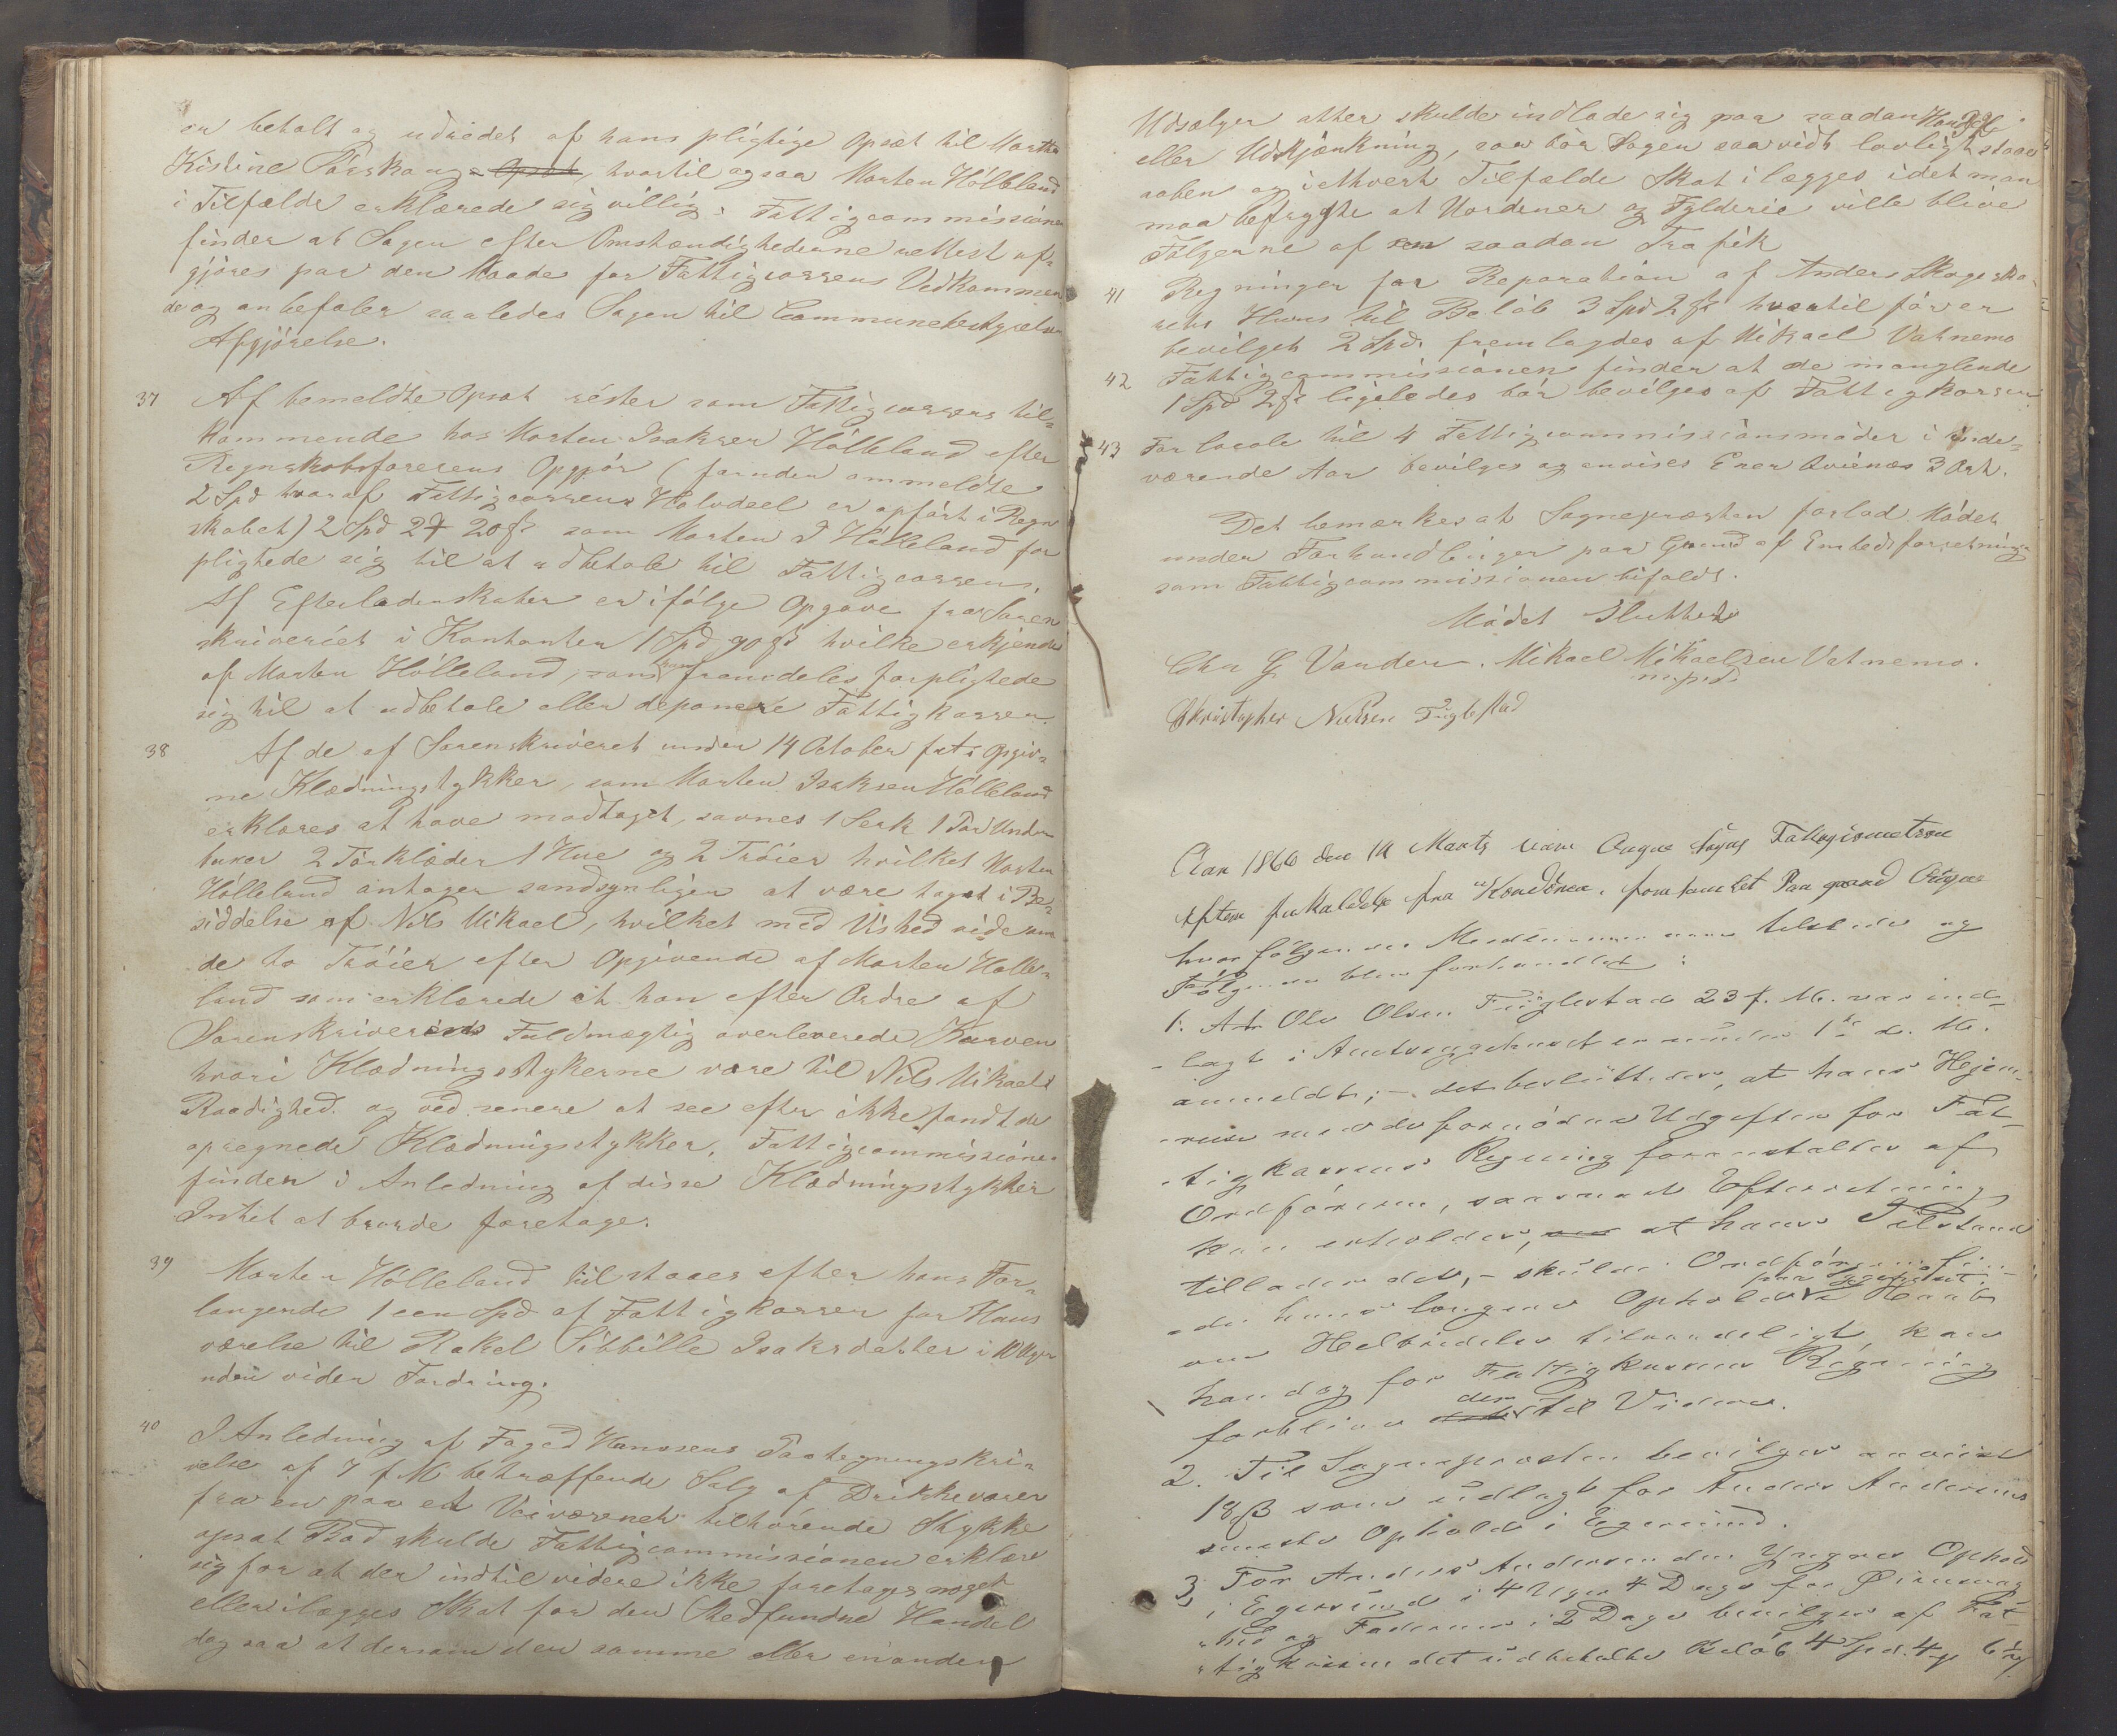 er betalt og udredet af hans pligtige Opsat til Martha
Kistine Pörskaug - Opsat, hvortil ogsaa Morten Hölleland
i Tilfælde erklærede sig villig. Fattigcommissionen
finder at Sagen efter Omstændighederne rettest af-
gjöres paa den Maade for Fattigcassens Vedkommen
de og anbefaler saaledes Sagen til Communebestyrelsens
Afgjörelse.
37 Af bemeldte Opsat rester som Fattigcassens til-
kommende hos Morten Isaksen Hölleland efter
Regnskabsförerens Opgjör (foruden ommeldte
2 Spd hvoraf Fattigcassens Halvdeel er opfört i Regn
skabet) 2 Spd 20 ß som Morten I Hölleland for
pligtede sig til at udbetale til Fattigcassen.
Af Efterladenskaber er ifölge Opgave fra Soren
skriveriet i Kontanter 1 Spd 90 ß hvilke erkjendes
af Morten Hölleland, som fremdeles forpligtede
sig til at udbetale eller deponere Fattigkassen.
38 Af de af Sorenskriveriet under 14 October opgiv-
ne Klædningstykker, som Morten Isaksen Hölleland
erklæres at have modtaget, savnes 1 Serk 1 Par Under
buxer 2 Törklæder 1 Hue og 2 Tröier hvilket Morten
Hölleland antager sandsynligen at være taget i Be-
siddelse af Nils Mikael, hvilket med Vished vides om
de to Tröier efter Opgivende af Morten Hölle-
land som erklærede at han efter Ordre af
Sorenskriverens Fuldmægtig overleverede Kurven
hvori Klædningsstykerne vare til Nils Mikaels
Raadighed og ved senere at see efter ikke fandt de
opregnede Klædningsstykker. Fattigcommissionen
finder i Anledning af disse Klædningsstykker
Intet at burde foretage.
39 Morten Hölleland tilstaaes efter hans For-
langende 1 een Spd af Fattigkassen for Huus
værelse til Rakel Sibbille Isaksdatter i 10 Uger
uden viden Fordring.
40 I Anledning af Foged Hanssens Paategningsskri-
velse af 7 f. M. betræffende Salg af Drikkevarer
fra en paa et Veivæsenet tilhörende Stykke
opsat Bod skulde Fattigcommissionen erklære
sig for at der indtil videre ikke foretages noget
eller ilægges Skat for den Stedfundne Handel
dog saa at dersom den samme eller en anden
Udsælger atter skulde indlade sig paa saadan Handel
eller Udskjænkning, saa bör Sagen saavidt lovligt staae
aaben og i ethvert Tilfælde Skat ilægges idet man
maa befrygte at Uordener og Fylderie ville blive
Fölgerne af en saadan Trafik
41 Regninger for Reparation af Anders Skogs
Huus til Belöb 3 Spd 2 ß hvortil för er
bevilget 2 Spd. fremlagdes af Mikael Vatnemo
42 Fattigcommissionen finder at de manglende
1 Spd 2 ß ligeledes bör bevilges af Fattigkassen
43 For locale til 4 Fattigcommissionsmöder i inde-
værende Aar bevilges og anvises Ener Qvienes 3 Ort.
Det bemærkes at Sognepræsten forlod Mödet
under Forhandlinger paa Grund af Embedsforretning
som Fattigcommissionen bifaldt.
Mödet Sluttet
Chr G Vander. Mikael Mikaelsen Vatnemo.
m. p. P.
Khristopher Nielsen Fuglestad
Aar 1866 den 14 Marts var Ougne Sogns
efter fra
hvor fölgende Medlemmer var tilstede og
Fölgende blev forhandlet:
1. At Ole Olsen Fuglestad 23 f. M. var ind-
lagt i Amtssygehuset er under 1ste d. M.
anmeldt; - det besluttedes, at hans Hjem-
reise med de fornödne Udgifter for Fat-
tigkassens Regning foranstaltes af
Ordföreren, saasnart Efterretning
kan erholdes, at hans Tilstand
tillader det, - skulde Ordföreren fin-
de hans længere Ophold paa Sygehuset i Haab
om Helbredelse tilraadeligt, kan
han dog for Fattigkassens Regning
forblive der til Videre.
2. Til Sognepræsten bevilges anviist
18 ß som udlagt for Anders Andersens
seneste Ophold i Egersund.
3 For Anders Andersen den yngres Ophold
i Egersund i 4 Uger 4 Dage for
hed og Faderens i 2 Dage bevilges af Fat-
tigkassen det udbetalte Belöb 4 Spd. 4